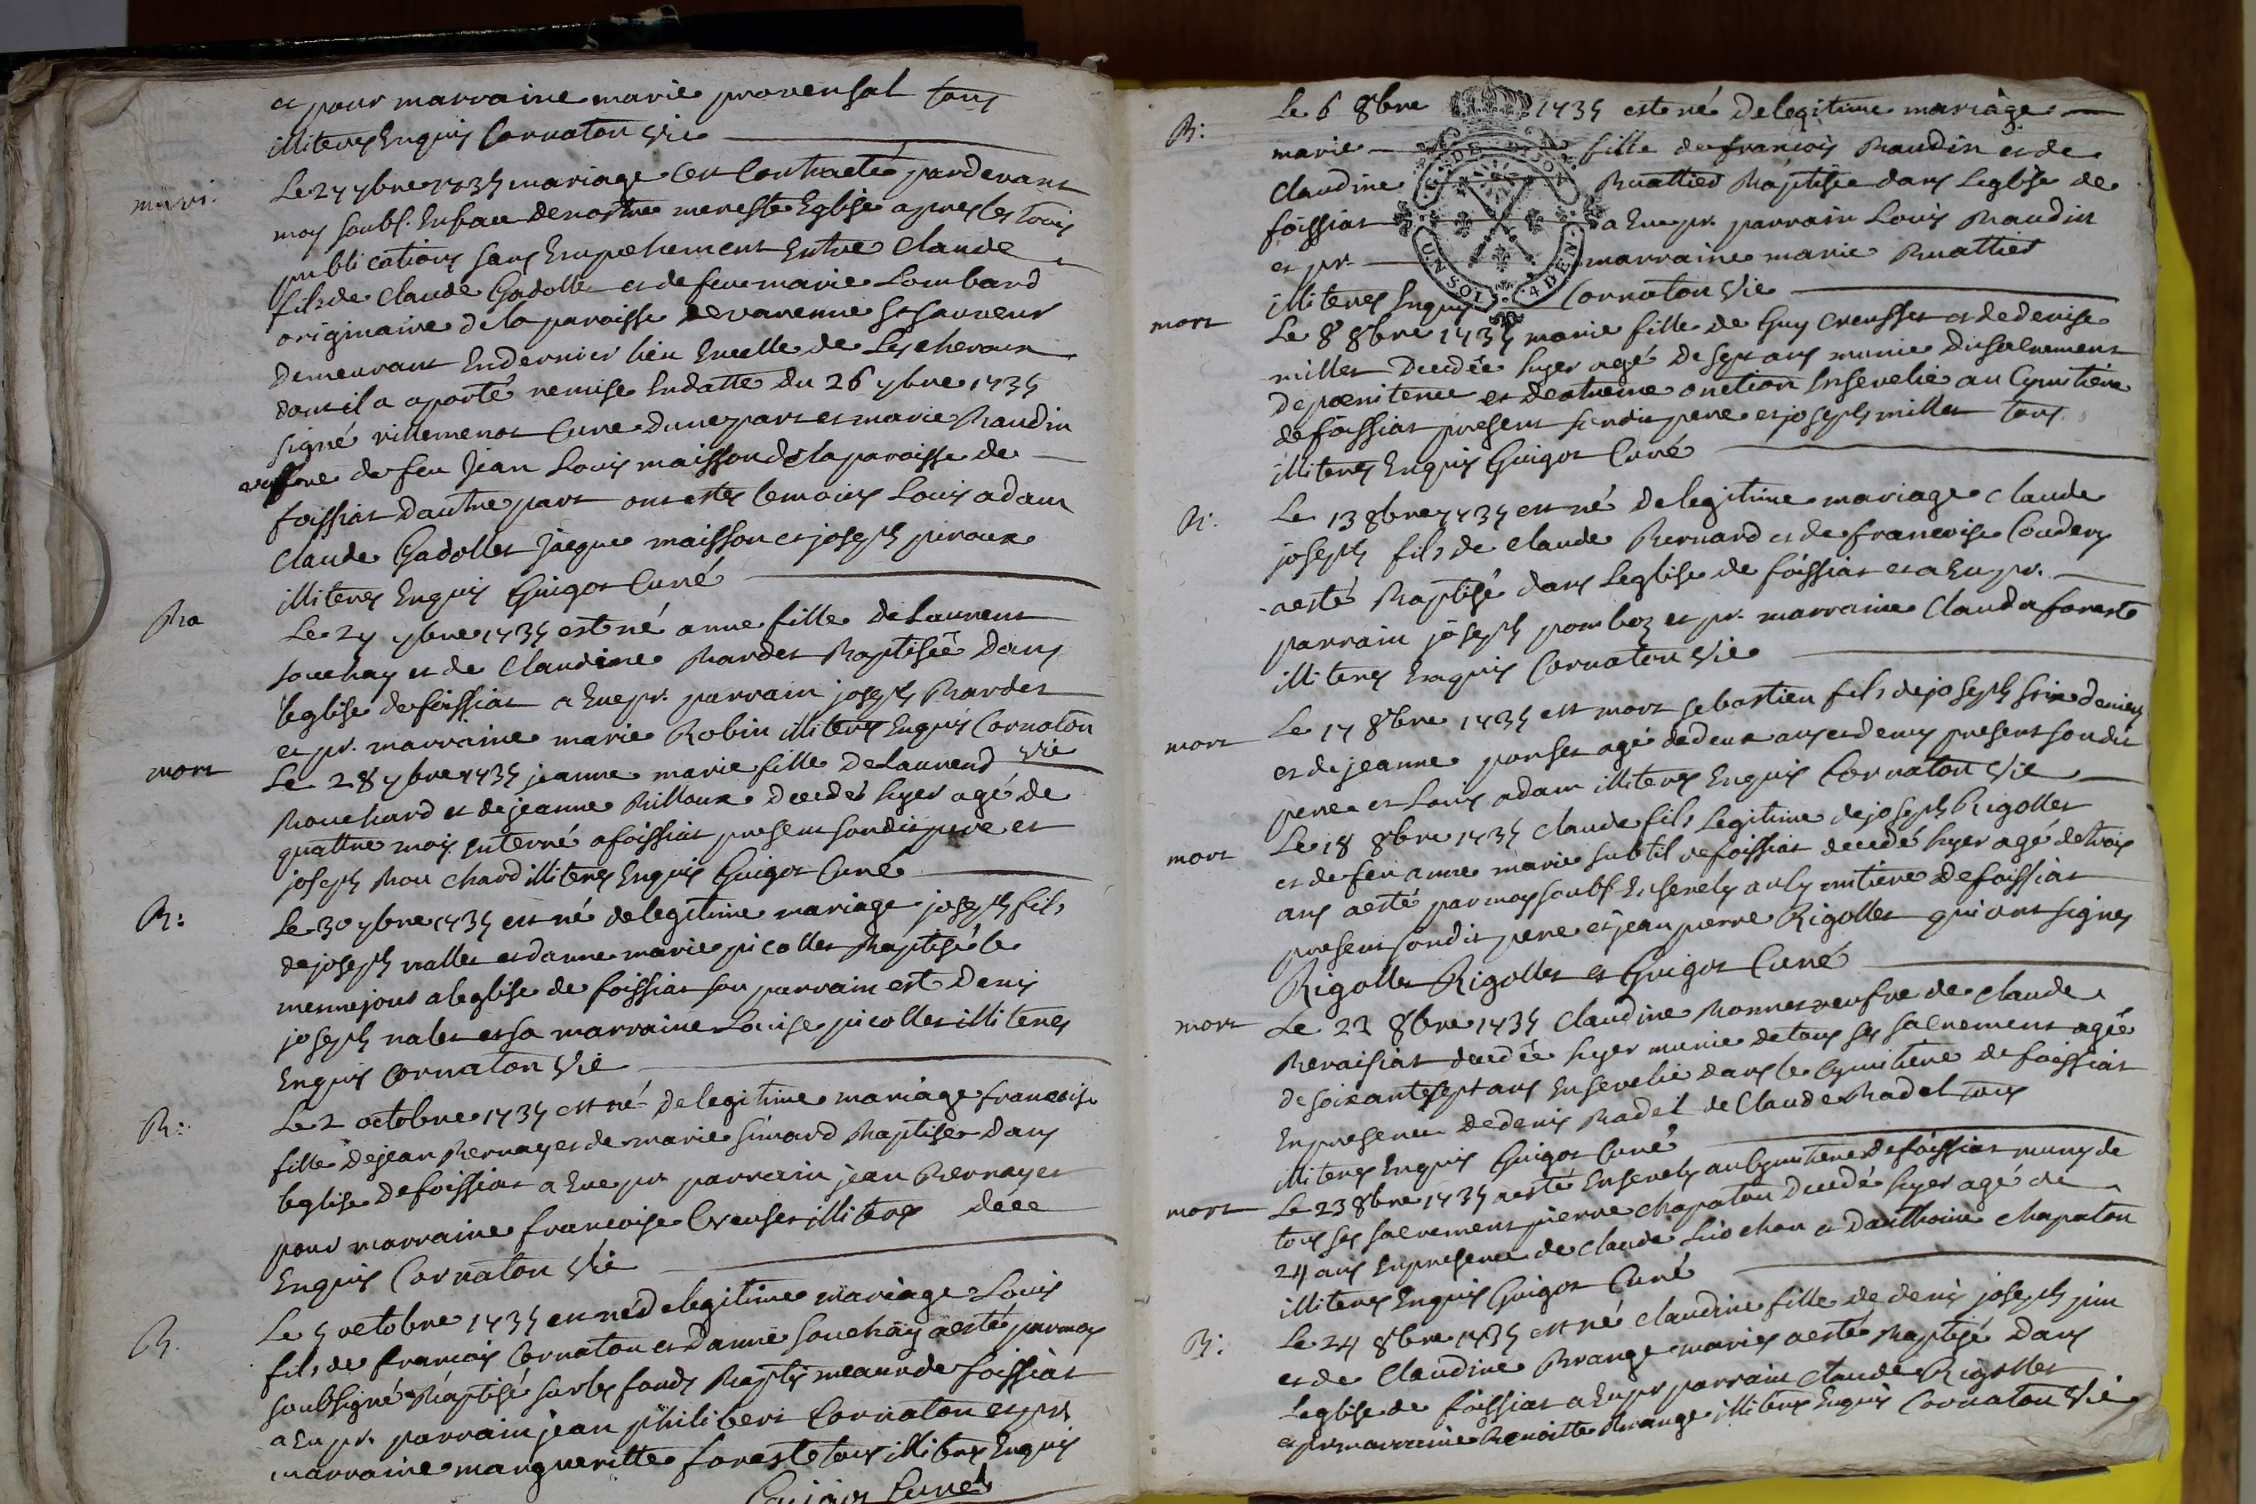 et pour marraine marie provensal tous
illiteres Enquis Cornaton vic
mari.
Le 27 7bre 1735 mariage est Contracté pardevant
moy soubs. En face de nostre mere ste Eglise apres les trois
publications sans Empechement Entre Claude
fils de Claude Gadollet et de feue marie Lombard
originaire de la paroisse de varenne St Sauveur
demeurant En dernier lieu Encelle de Lescheroux
dont il a aporté remise En datte du 26 7bre 1735
signé villemenot Curé dune part et marie Baudin
veufve de feu Jean Louis maisson de la paroisse de
foissiat dautre part ont estes temoins Louis adam
Claude Gadollet Jacque maisson et joseph piroux
illiteres Enquis Guigot Curé
Ba
Le 27 7bre 1735 est né anne fille de Laurent
souchay et de Claudine Bardet Baptisée dans
leglise de foissiat a Eue pr. parrain joseph Bardet
et pr. marraine marie Robin illiteres Enquis Cornaton
vic
mort
Le 28 7bre 1735 jeanne marie fille de Laurend
Bouchard et de jeanne Billoux decedés hyer agé de
quattre mois enterré a foissiat present sondit pere et
joseph Bouchard illiteres Enquis Guigot Curé
B:
Le 30 7bre 1735 est né de legitime mariage joseph fils
de joseph nallet et danne marie picollet Baptisé le
mesme jour a leglise de foissiat son parrain est Denis
joseph nalet et sa marraine Louise picollet illiteres
Enquis Cornaton vic
B:
Le 2 octobre 1735 est né de legitime mariage francoise
fille de jean Bernayet de marie simard Baptisée dans
leglise de foissiat a Eue pr. parrain jean Bernayet
pour marraine francoise Creuset illiteres
Enquis Cornaton vic
B.
Le 5 octobre 1735 est né de legitime mariage Louis
fils de francois Cornaton et danne souchay a esté par moy
soubsigné Baptisé sur les fonds Baptismeaux de foissiat
a Eu pr. parrain jean philibert Cornaton et pr.
marraine margueritte foreste tous illiteres Enquis
Guigot Curé
B:
Le 6 8bre 1735 est né de legitime mariage
marie fille de francois Baudin et de
Claudine Buattier Baptisée dans Leglise de
foissiat a Eue pr. parrain Louis Baudin
et pr. marraine marie Buattier
illiteres Enquis Cornaton vic
DE DIJON
UN SOL 4 DEN
mort
Le 8 8bre 1735 marie fille de Guy Creusset et de denise
millet Decedée hyer agé de sept ans munie du sacrement
de poenitence et dextreme onction Ensevelie au Cymitiere
de foissiat present sondit pere et joseph millet tous
illiteres Enquis Guigot Curé
B.
Le 13 8bre 1735 est né de legitime mariage claude
joseph fils de Claude Bernard et de francoise Coudery
a esté Baptisé dans Leglise de foissiat et a Eu pr.
parrain joseph pomboz et pr. marraine Clauda foreste
illiteres Enquis Cornaton vic
mort
Le 17 8bre 1735 est mort sebastien fils de joseph
et de jeanne ponset agé de deux ans et demy present sondit
pere et Louis adam illiteres Enquis Cornaton vic
mort
Le 18 8bre 1735 Claude fils Legitime de joseph Rigollet
et de feu anne marie subtil de foissiat decedé hyer agé de trois
ans a esté par moy soubs. Ensevely au Cymitiere de foissiat
present sondit pere et jean pierre Rigollet qui ont signes
Rigollet Rigollet et Guigot Curé
mort
Le 22 8bre 1735 Claudine Monnet veufve de Claude
Revaisiat decedée hyer munie de tous ses sacrement agée
de soixante sept ans Ensevelie dans le Cymitiere de foissiat
En presence de denis Badel de Claude Badel tous
illiteres Enquis Guigot Curé
mort
Le 23 8bre 1735 a esté Ensevely au Cymitiere de foissiat muny de
tous ses sacrement pierre chapaton Decedé hyer agé de
24 ans En presence de Claude et danthoine chapaton
illiteres Enquis Guigot Curé
B:
Le 24 8bre 1735 est né claudine fille de denis joseph
et de Claudine Brange maries a esté Baptisé dans
Leglise de foissiat a Eu pr parrain Claude Rigollet
et pr marraine Benoitte Brange illiteres Enquis Cornaton vic